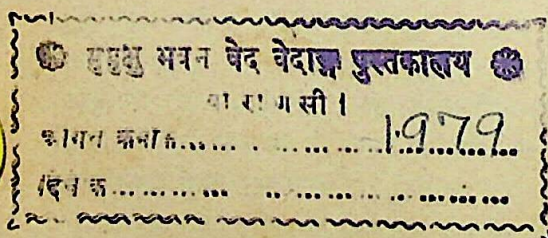 मुमुक्षु भवन वेद वेदाङ्ग पुस्तकालय
वाराणसी।
आगत क्रमांक............1979
दिनांक............